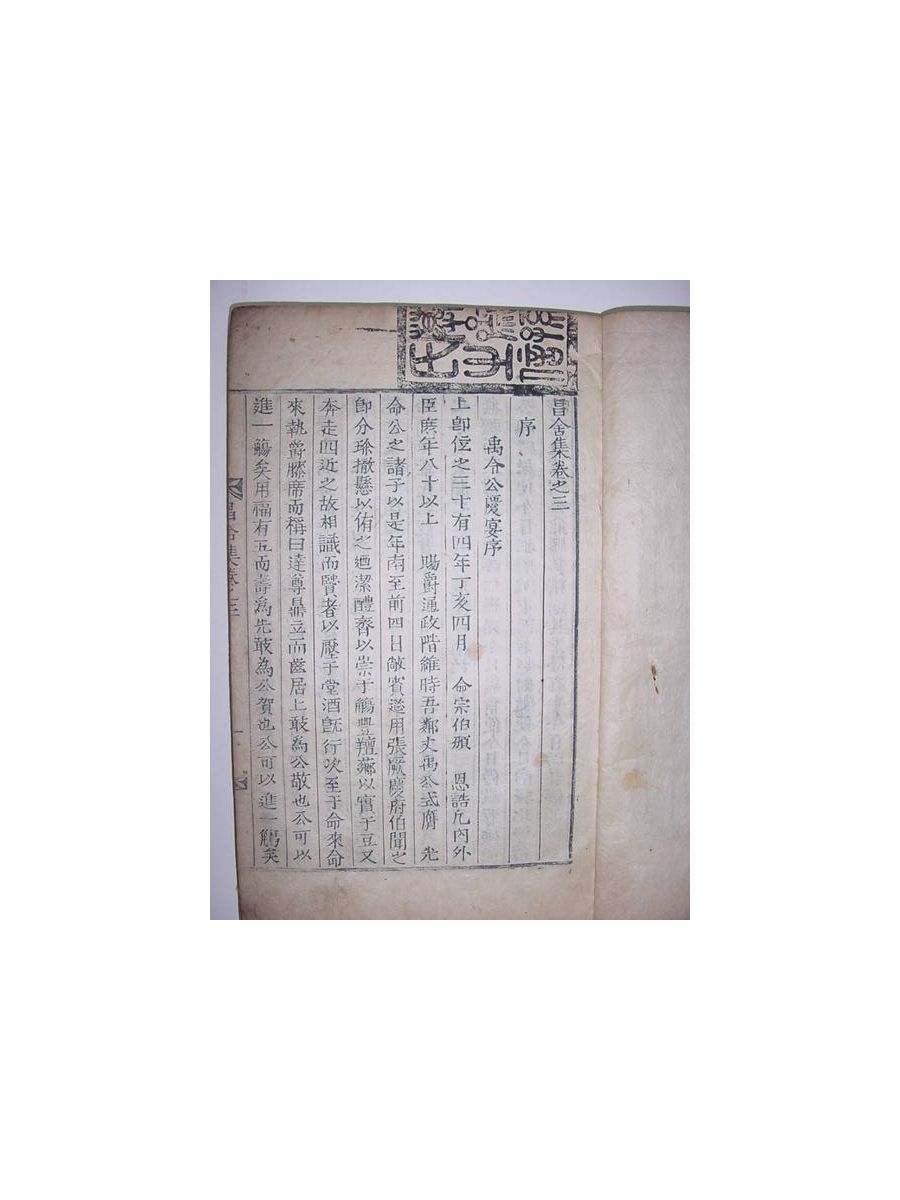 昌舍集卷之三
序
禹令公慶宴序
上卽位之三十有四年丁亥四月 命宗伯頒 恩誥凡內外
臣庶年八十以上 賜爵通政階維時吾鄰丈禹公式膺 光
命公之諸子以是年南至前四日敵賓筵用張厥慶府伯聞之
卽分瑔撤懸以侑之廼潔醴齊以崇于觴豐羶薌以實于豆又
奔走四近之故相識而賢者以壓于堂酒旣行次至于命來命
來執爵膝席而稱曰達尊鼎立而齒居上敢為公敬也公可以
進一觴矣用福有五而壽為先敢為公賀也公可以進一觴矣
昌舍集卷之三
一